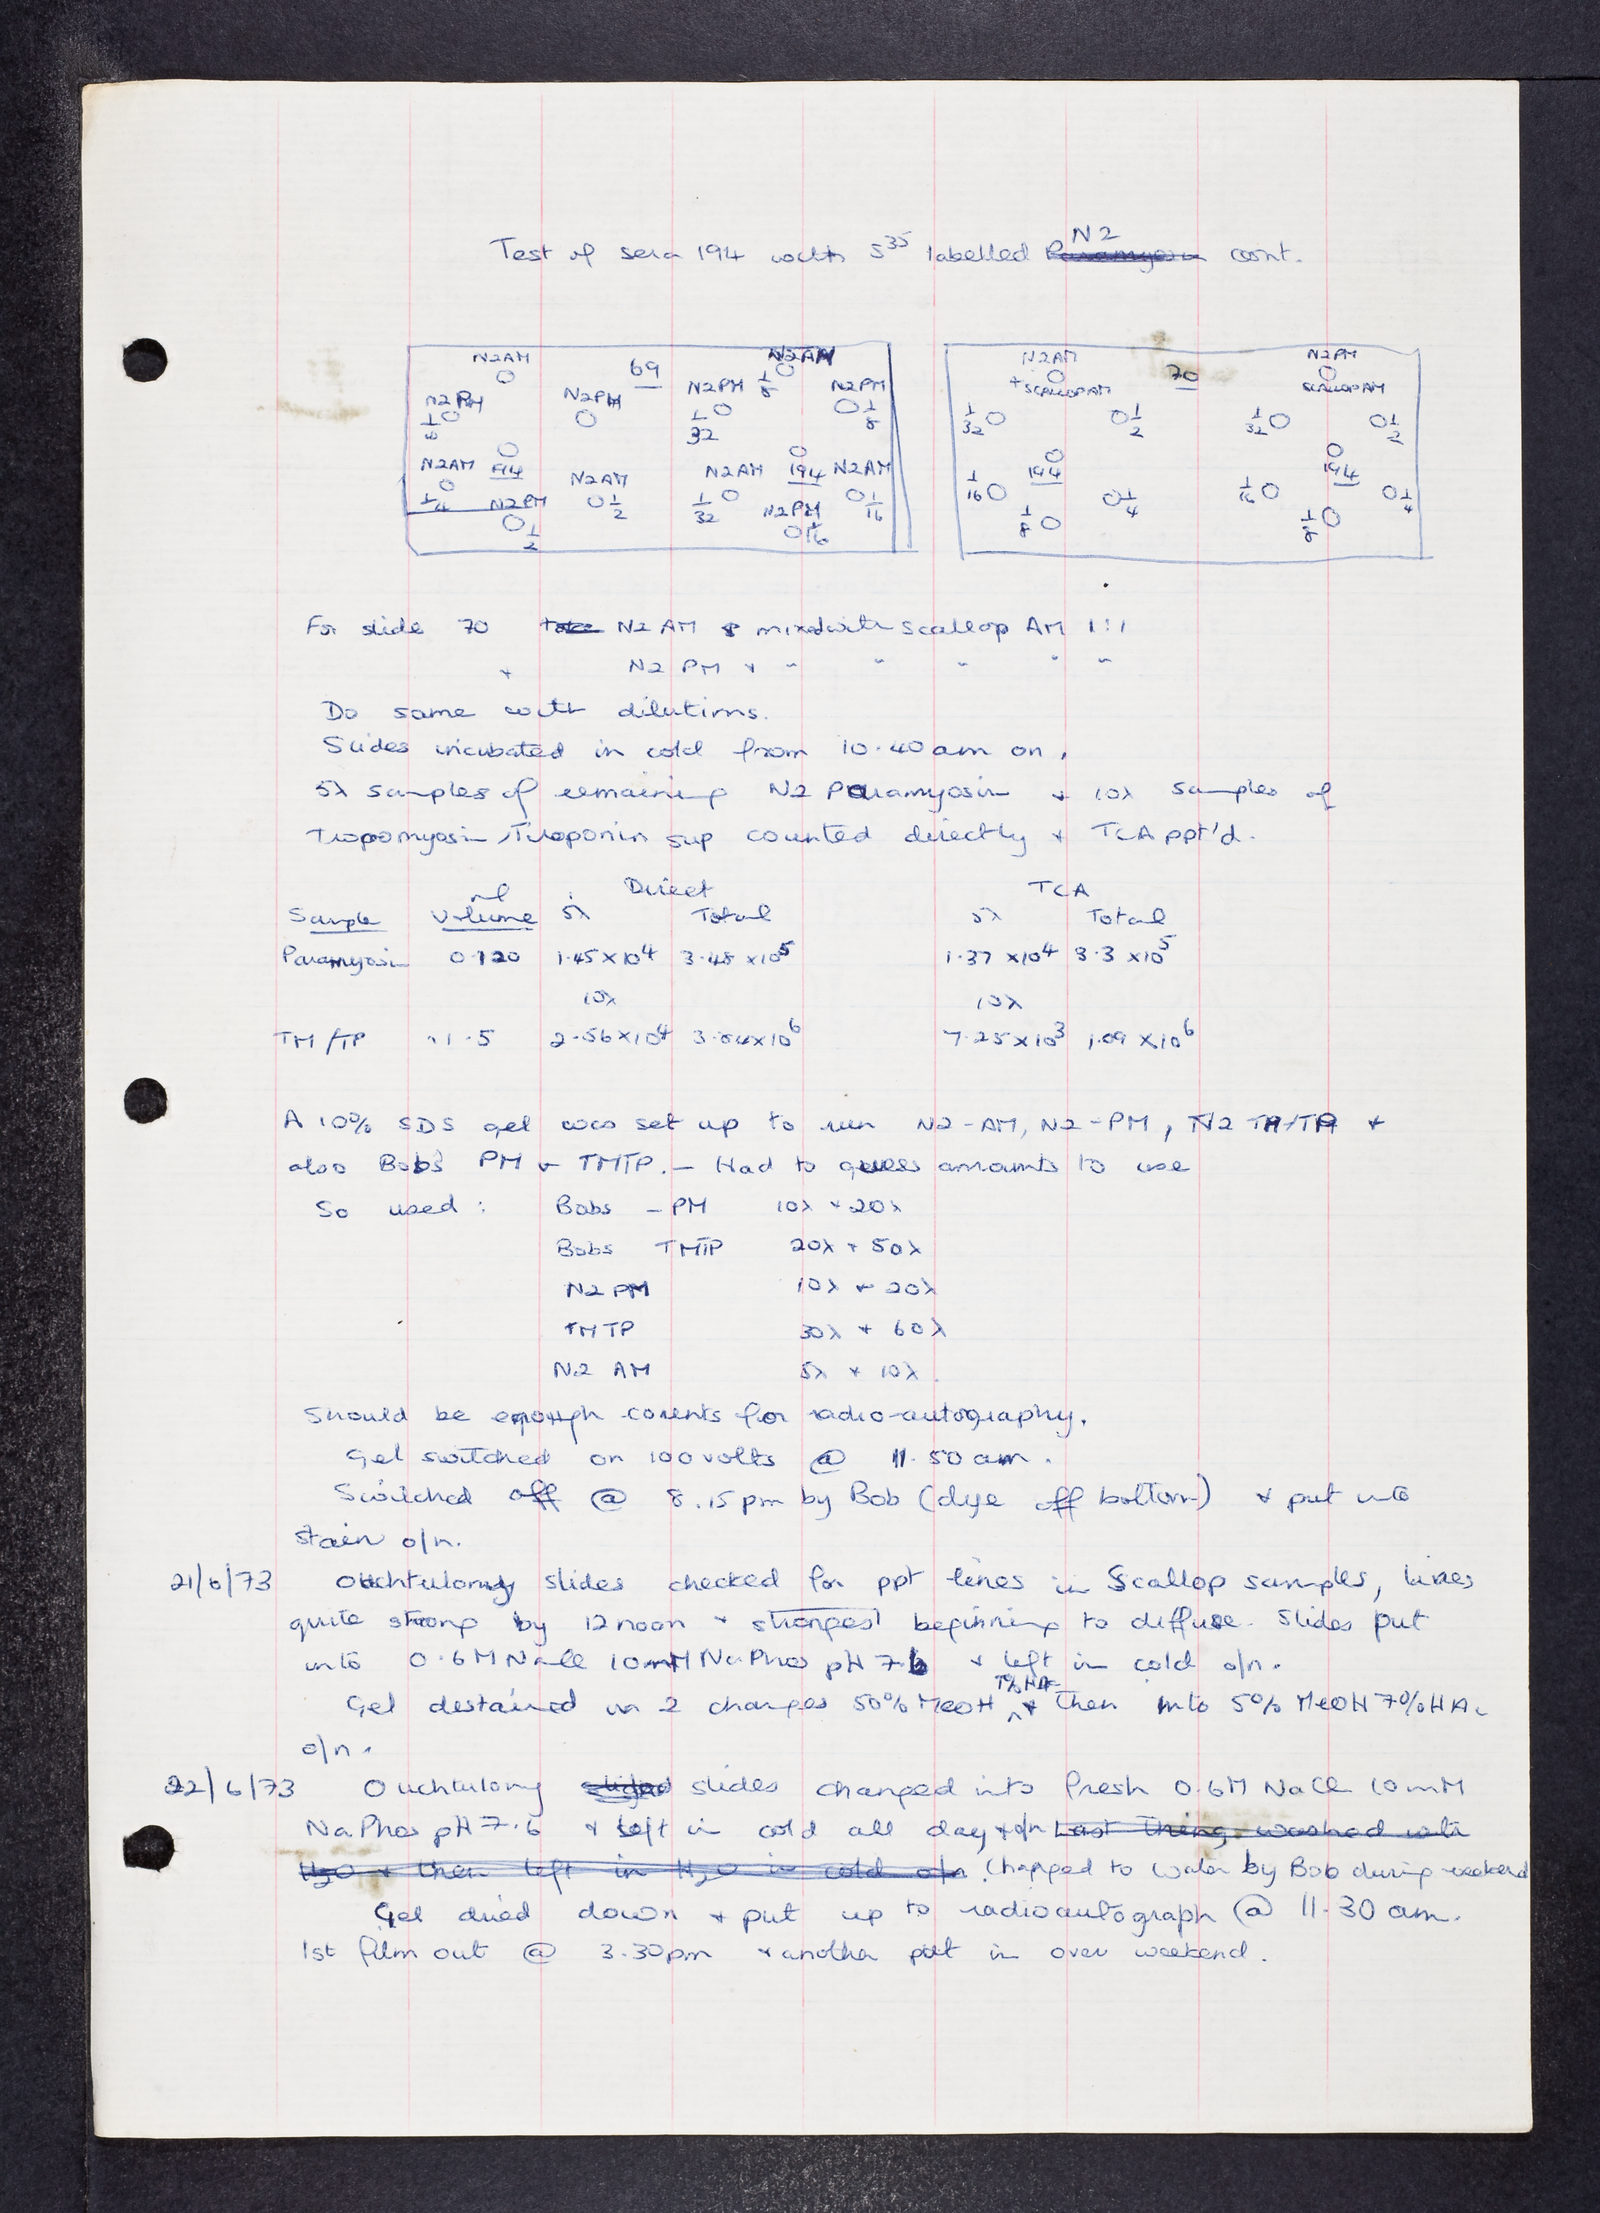 Test of sera 194 with S35 labelled N2 cont.
N2AM 69 N2AM
N2PM N2PM N2PM 1/8 N2PM
1/8 1/32 1/8
N2AM 194 N2AM N2AM 194 N2AM
1/4 N2PM 1/2 1/32 N2PM 1/16
1/2 1/16
N2AM 70 N2PM
+ SCALLOP AM SCALLOP AM
1/32 1/2 1/32 1/2
194 194
1/16 1/4 1/16 1/4
1/8 1/8
For slide 70 N2 AM mixed with Scallop AM 1:1
+ N2 PM + " " " " "
Do same with dilutions.
Slides incubated in cold from 10.40am on.
5λ samples of remaining N2 Paramyosin + 10λ samples of
Tropomyosin/Troponin sup counted directly + TCA ppt'd.
ml Direct TCA
Sample Volume 5λ Total 5λ Total
Paramyosin 0.120 1.45 x 10^4 3.48 x 10^5 1.37 x 10^4 3.3 x 10^5
10λ 10λ
TM/TP ~1.5 2.56 x 10^4 3.84 x 10^6 7.25 x 10^3 1.09 x 10^6
A 10% SDS gel was set up to run N2-AM, N2-PM, N2 TM/TP +
also Bob's PM + TMTP. - Had to guess amounts to use
So used : Bobs - PM 10λ + 20λ
Bobs TMTP 20λ + 50λ
N2 PM 10λ + 20λ
TMTP 30λ + 60λ
N2 AM 5λ + 10λ.
Should be enough counts for radio-autography.
Gel switched on 100 volts @ 11.50 am.
Switched off @ 8.15 pm by Bob (dye off bottom) + put into
stain o/n.
21/6/73 Ouchtulony slides checked for ppt lines in Scallop samples, lines
quite strong by 12 noon + strongest beginning to diffuse. Slides put
into 0.6M NaCl 10mM NaPhos pH 7.6 + left in cold o/n.
7% HAc
Gel destained in 2 changes 50% MeOH ^ + then into 5% MeOH 7% HAc
o/n.
22/6/73 Ouchtulony slides changed into fresh 0.6M NaCl 10mM
NaPhos pH 7.6 + left in cold all day + o/n Last thing washed with
H2O + then left in H2O in cold o/n. Changed to water by Bob during weekend
Gel dried down + put up to radioautograph @ 11.30 am.
1st film out @ 3.30pm + another put in over weekend.